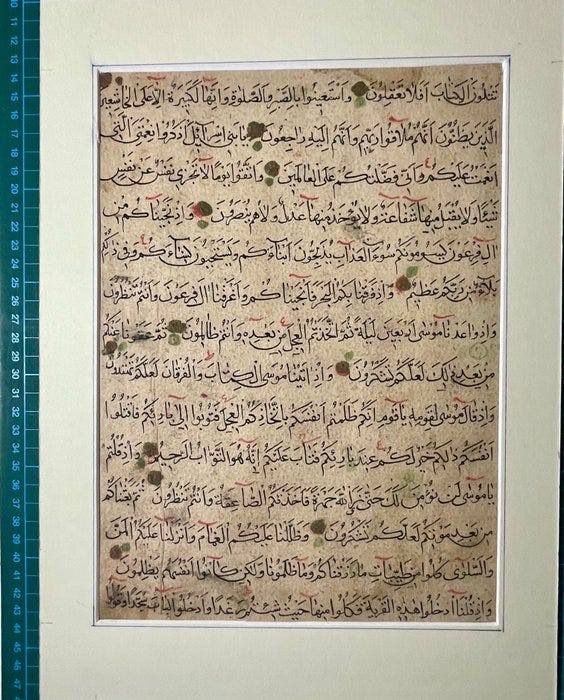 تَتْلُونَ الْكِتَابَ اَفَلَا تَعْقِلُونَ وَاسْتَعِينُوا بِالصَّبْرِ وَالصَّلٰوةِ وَاِنَّهَا لَكَبِيرَةٌ اِلَّا عَلَى الْخَاشِعِينَ
الَّذِينَ يَظُنُّونَ اَنَّهُمْ مُلَاقُوا رَبِّهِمْ وَاَنَّهُمْ اِلَيْهِ رَاجِعُونَ يَا بَنِي اِسْرَآئِيلَ اذْكُرُوا نِعْمَتِيَ الَّتِي
اَنْعَمْتُ عَلَيْكُمْ وَاَنِّي فَضَّلْتُكُمْ عَلَى الْعَالَمِينَ وَاتَّقُوا يَوْمًا لَا تَجْزِي نَفْسٌ عَنْ نَفْسٍ
شَيْئًا وَلَا يُقْبَلُ مِنْهَا شَفَاعَةٌ وَلَا يُؤْخَذُ مِنْهَا عَدْلٌ وَلَا هُمْ يُنْصَرُونَ وَاِذْ نَجَّيْنَاكُمْ مِنْ
اٰلِ فِرْعَوْنَ يَسُومُونَكُمْ سُوءَ الْعَذَابِ يُذَبِّحُونَ اَبْنَآءَكُمْ وَيَسْتَحْيُونَ نِسَآءَكُمْ وَفِي ذٰلِكُمْ
بَلَآءٌ مِنْ رَبِّكُمْ عَظِيمٌ وَاِذْ فَرَقْنَا بِكُمُ الْبَحْرَ فَاَنْجَيْنَاكُمْ وَاَغْرَقْنَا اٰلَ فِرْعَوْنَ وَاَنْتُمْ تَنْظُرُونَ
وَاِذْ وَاعَدْنَا مُوسٰى اَرْبَعِينَ لَيْلَةً ثُمَّ اتَّخَذْتُمُ الْعِجْلَ مِنْ بَعْدِهِ وَاَنْتُمْ ظَالِمُونَ ثُمَّ عَفَوْنَا عَنْكُمْ
مِنْ بَعْدِ ذٰلِكَ لَعَلَّكُمْ تَشْكُرُونَ وَاِذْ اٰتَيْنَا مُوسَى الْكِتَابَ وَالْفُرْقَانَ لَعَلَّكُمْ تَهْتَدُونَ
وَاِذْ قَالَ مُوسٰى لِقَوْمِهِ يَا قَوْمِ اِنَّكُمْ ظَلَمْتُمْ اَنْفُسَكُمْ بِاتِّخَاذِكُمُ الْعِجْلَ فَتُوبُوا اِلٰى بَارِئِكُمْ فَاقْتُلُوا
اَنْفُسَكُمْ ذٰلِكُمْ خَيْرٌ لَكُمْ عِنْدَ بَارِئِكُمْ فَتَابَ عَلَيْكُمْ اِنَّهُ هُوَ التَّوَّابُ الرَّحِيمُ وَاِذْ قُلْتُمْ
يَا مُوسٰى لَنْ نُؤْمِنَ لَكَ حَتّٰى نَرَى اللّٰهَ جَهْرَةً فَاَخَذَتْكُمُ الصَّاعِقَةُ وَاَنْتُمْ تَنْظُرُونَ ثُمَّ بَعَثْنَاكُمْ
مِنْ بَعْدِ مَوْتِكُمْ لَعَلَّكُمْ تَشْكُرُونَ وَظَلَّلْنَا عَلَيْكُمُ الْغَمَامَ وَاَنْزَلْنَا عَلَيْكُمُ الْمَنَّ
وَالسَّلْوٰى كُلُوا مِنْ طَيِّبَاتِ مَا رَزَقْنَاكُمْ وَمَا ظَلَمُونَا وَلٰكِنْ كَانُوا اَنْفُسَهُمْ يَظْلِمُونَ
وَاِذْ قُلْنَا ادْخُلُوا هٰذِهِ الْقَرْيَةَ فَكُلُوا مِنْهَا حَيْثُ شِئْتُمْ رَغَدًا وَادْخُلُوا الْبَابَ سُجَّدًا وَقُولُوا